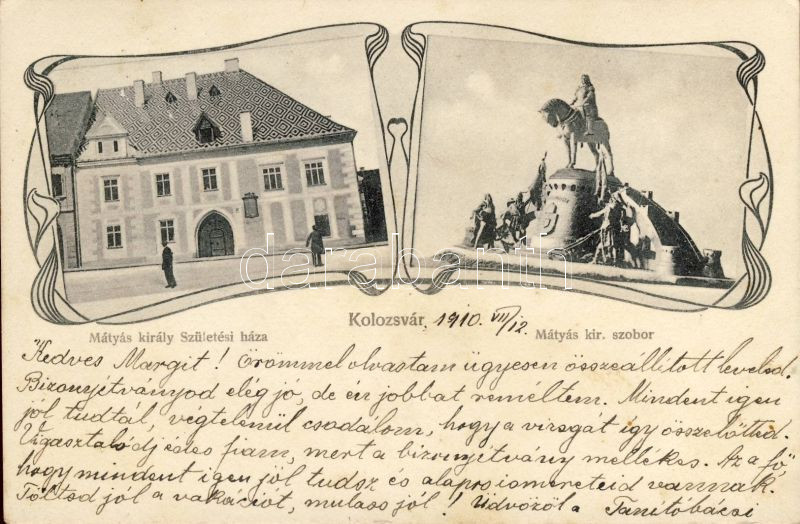 Mátyás király Születési háza
Kolozsvár, 1910. VII/12
Mátyás kir. szobor
Kedves Margit! Örömmel olvastam ügyesen összeállított leveled.
Bizonyítványod elég jó, de én jobbat reméltem. Mindent igen
jól tudtál, végtelenül csodálom, hogy a vizsgát így összelőtted.
Vigasztalódj édes fiam, mert a bizonyítvány mellékes. Az a fő,
hogy mindent igen jól tudsz és alapos ismereteid vannak.
Töltsd jól a vakációt, mulass jól! Üdvözöl a Tanítóbácsi
darabanth